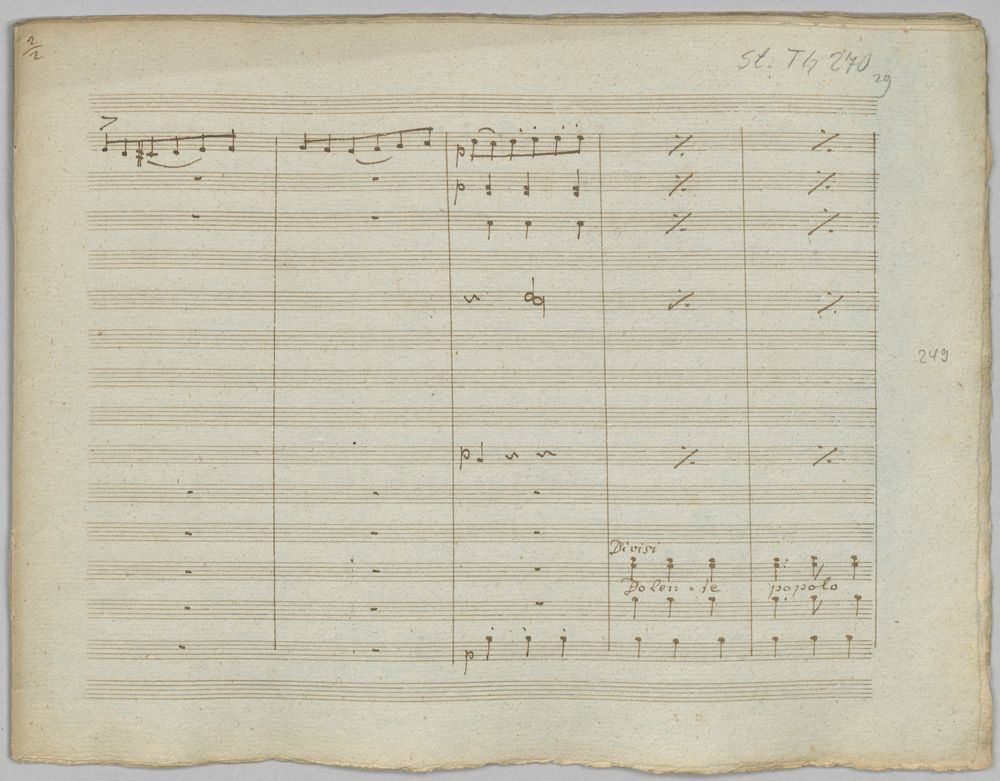 2/2
St. Th 270
29
p
p
249
p
Divisi
Dolen - te popolo
p